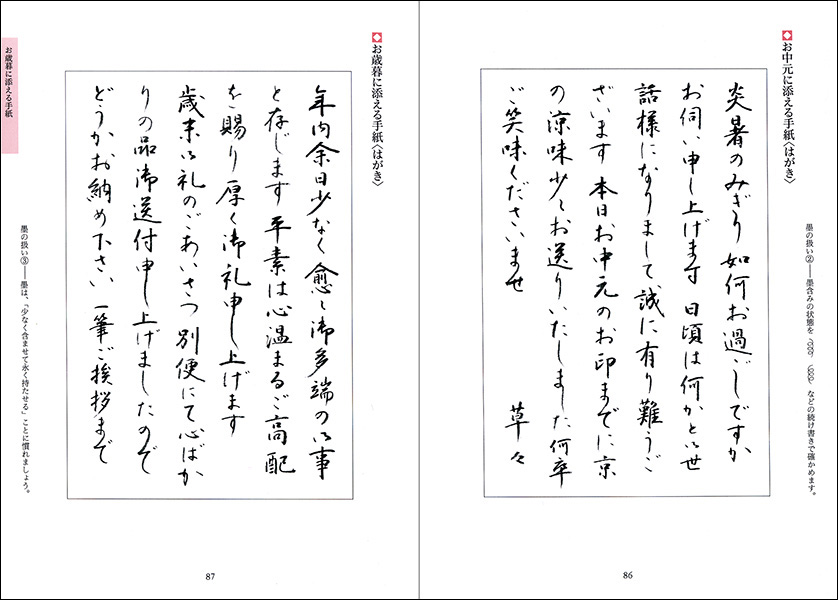 お中元に添える手紙〈はがき〉
炎暑のみぎり 如何お過ごしですか
お伺い申し上げます 日頃は何かと御世
話様になりまして誠に有り難うご
ざいます 本日お中元のお印までに京
の涼味少々お送りいたしました何卒
ご笑味くださいませ 草々
墨の扱い②――墨含みの状態を などの続け書きで確かめます。
86
お歳暮に添える手紙〈はがき〉
年内余日少なく愈々御多端の御事
と存じます 平素は心温まるご高配
を賜り厚く御礼申し上げます
歳末御礼のごあいさつ 別便にて心ばか
りの品御送付申し上げましたので
どうかお納め下さい 一筆ご挨拶まで
墨の扱い③――墨は、「少なく含ませて永く持たせる」ことに慣れましょう。
お歳暮に添える手紙
87